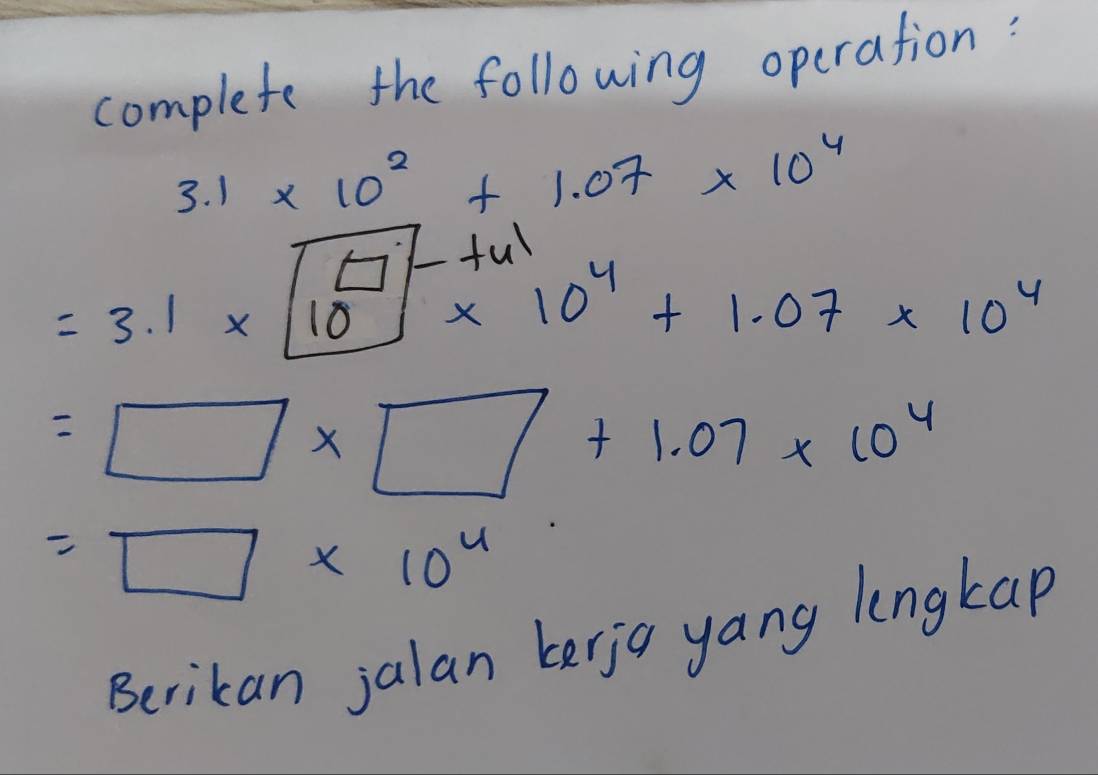 complete the following operation :
3.1 × 10² + 1.07 × 10⁴
= 3.1 × 10^□ × 10⁴ + 1.07 × 10⁴
= □ × □ + 1.07 × 10⁴
= □ × 10⁴
Berikan jalan kerja yang lengkap